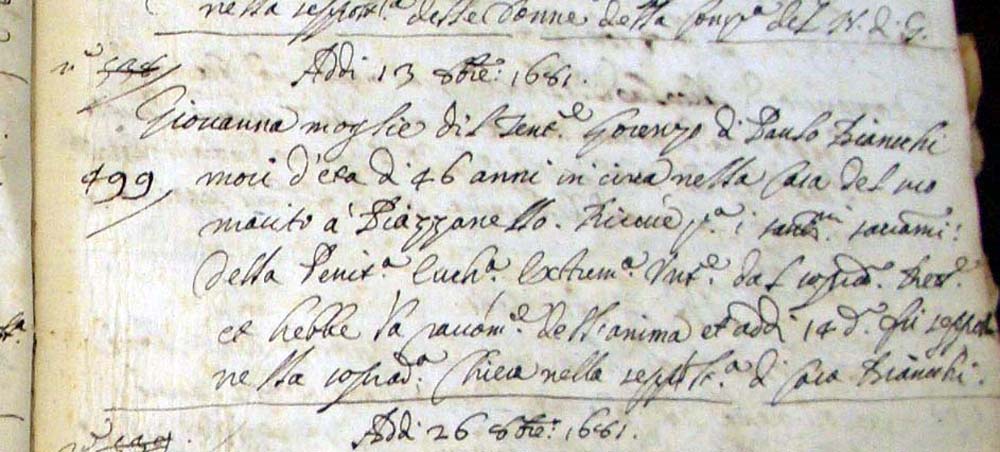 nella sepolt.ª delle Donne della Comp.ª del N. di G.
n.º 538
Addi 13 8bre: 1681.
Giovanna moglie di Lorenzo di Paulo Bianchi
499 mori d'età d 46 anni in circa nella Casa del suo
marito à Piazzanello. Riceuè p.ª i santi.mi sacram.ti
della Penit.ª Euch.ª Extrem.ª Unt.e dal soprad.º Ret.e
et hebbe la raccom.e dell'anima et addi 14 d.º fù sepolta
nella soprad.ª Chiesa nella sepolt.ª di Casa Bianchi.
Addi 26 8bre: 1681.